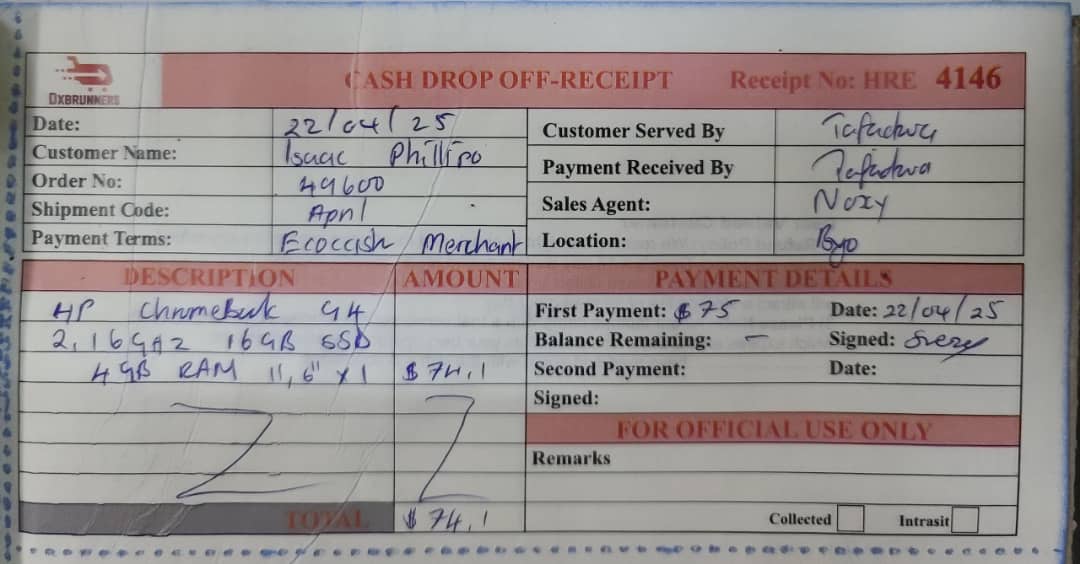 DXBRUNNERS
CASH DROP OFF-RECEIPT Receipt No: HRE 4146
Date: 22/04/25
Customer Name: Isaac Phillipo
Order No: 49600
Shipment Code: April
Payment Terms: Ecocash / Merchant
Customer Served By Tafadwa
Payment Received By Tafadwa
Sales Agent: Noxy
Location: Byo
DESCRIPTION AMOUNT
HP Chromebook G4
2,16GHZ 16GB SSD
4GB RAM 11,6" x 1 $74,1
TOTAL $74,1
PAYMENT DETAILS
First Payment: $75 Date: 22/04/25
Balance Remaining: – Signed:
Second Payment: Date:
Signed:
FOR OFFICIAL USE ONLY
Remarks
Collected Intrasit